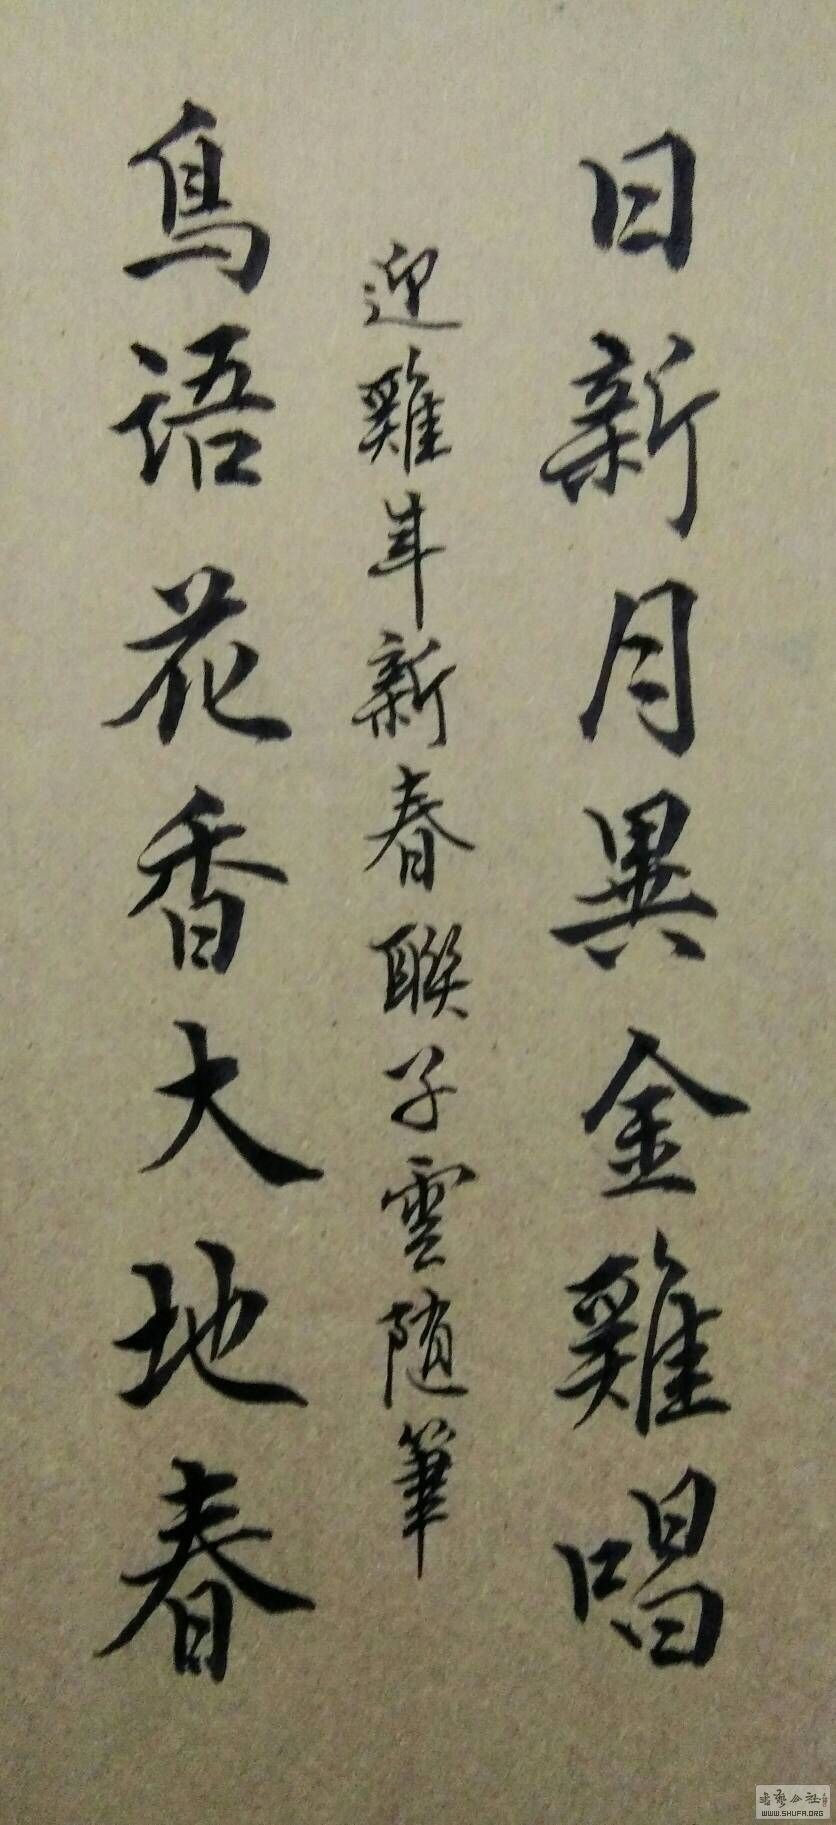 日新月異金雞唱
迎雞年新春聯子雲随筆
鳥語花香大地春
WWW.SHUFA.ORG